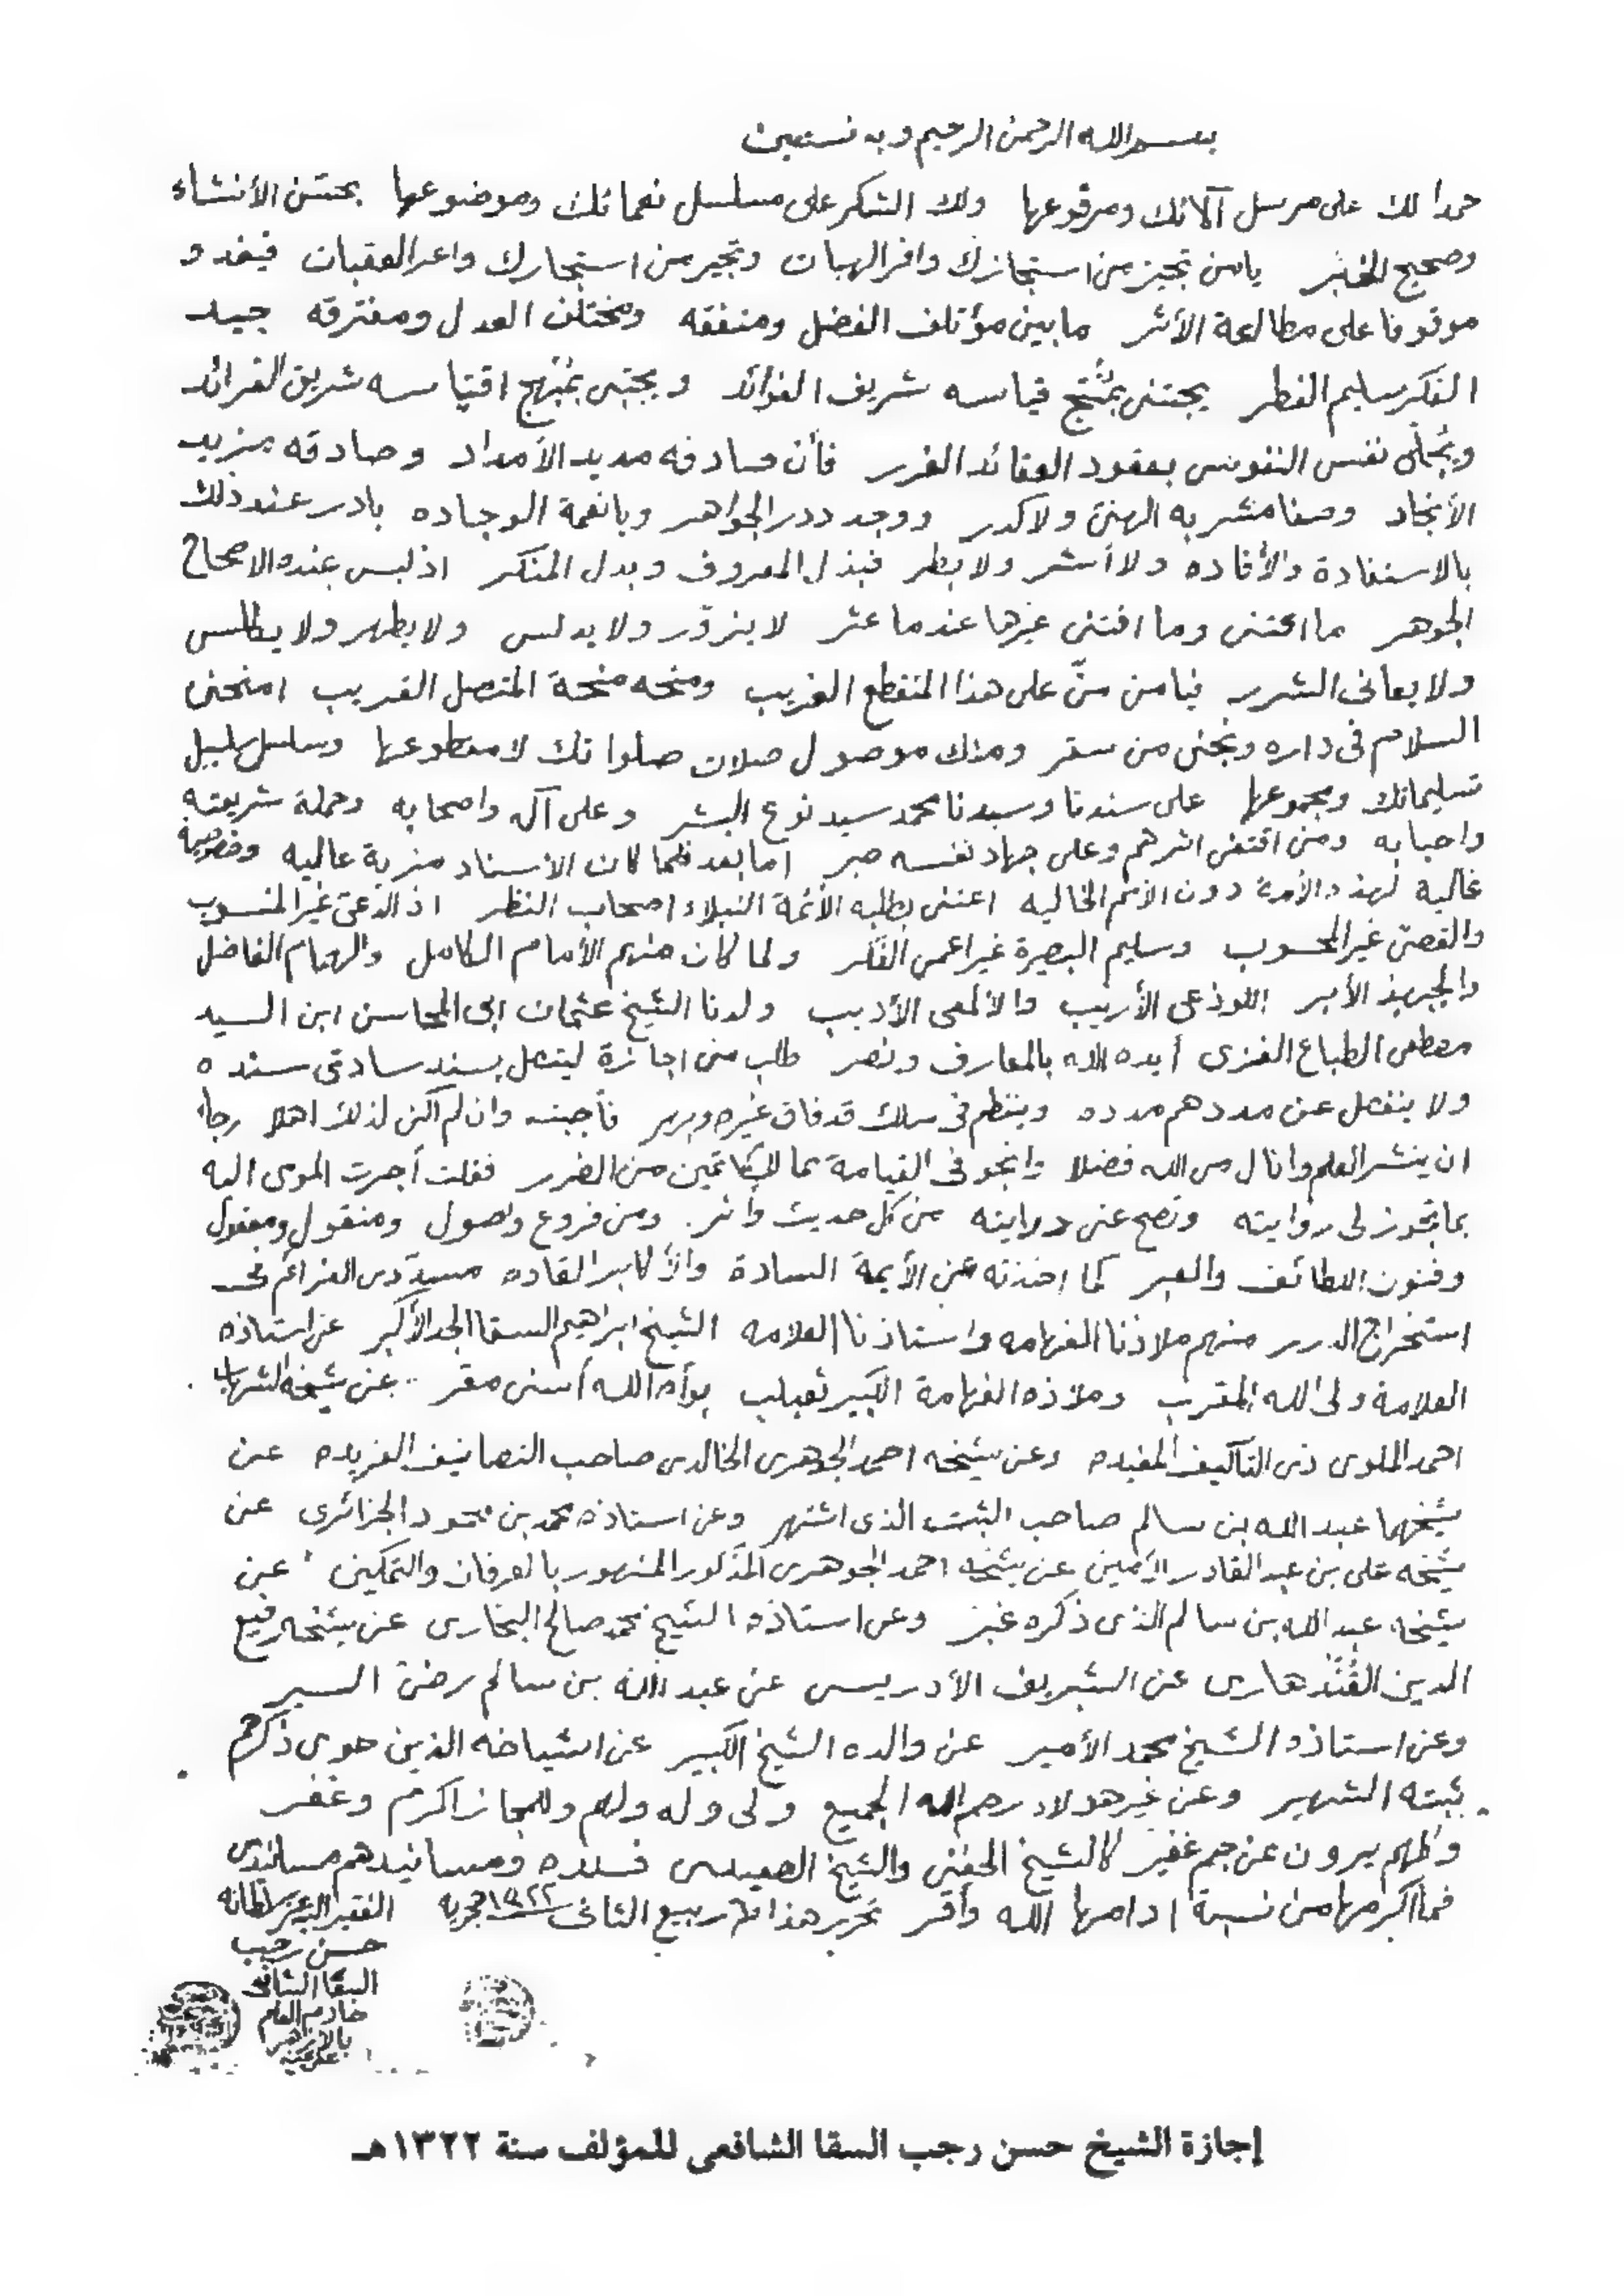 بسم الله الرحمن الرحيم وبه نستعين
حمدا لك على مرسل آلائك ومرفوعها ولك الشكر على مسلسل نعمائك وموضوعها بحسن الأنشاء
وصحيح الخبر يا من تجيز من استجازك وافر الهبات وتجير من استجارك واعر العقبات فيغدو
موقوفا على مطالعة الأثر ما بين مؤتلف الفضل ومتفقه ومختلف العدل ومفترقه جيد
الفكر سليم الفطر يجتنى بمنتج قياسه شريف الفوائد ويجتبى بمنهج اقتباسه شريف الفرائد
ويجلى نفس النفوس بعقود العقائد الغرر فأن صادفه مديد الأمداد وصادقه مزيد
الأنجاد وصفا مشربه الهنئ ولا كدر ووجد درر الجواهر ويا نعمة الوجاده بادر عند ذلك
بالاستفادة والأفاده ولا أشر ولا بطر فبذل المعروف وبدل المنكر اذ ليس عنده الا صحاح
الجوهر ما اكتنى وما اقتنى غيرها عندما عثر لا يزور ولا يدلس ولا يطهر ولا يطلس
ولا يعانى الشرر فيا من منّ على هذا المنقطع الغريب ومنحه منحة المتصل القريب امنحنى
السلام فى داره ونجنى من سقر ومنك موصول صلات صلواتك لا مقطوعها وسلسل سلسبيل
تسليماتك ومجموعها على سندنا وسيدنا محمد سيد نوع البشر وعلى آله واصحابه وحملة شريعته
واحبابه ومن اقتفى اثرهم وعلى جهاد نفسه صبر اما بعد فلما كان الاسناد مزية عاليه وخصوصية
غالية لهذه الأمة دون الأمم الخاليه اعتنى بطلبه الأئمة النبلاء اصحاب النظر اذ الدعى غير المنسوب
والقصى غير المحسوب وسليم البصيرة غير اعمى الفكر ولما كان منهم الأمام الكامل والهمام الفاضل
والجهبذ الأبر اللوذعى الأريب والالمعى الأديب ولدنا الشيخ عثمان ابى المحاسن ابن السيد
مصطفى الطباع الغزى أيده الله بالمعارف ونصر طلب منى اجازة ليتصل بسند سادتى سنده
ولا ينفصل عن مددهم مدده وينتظم فى سلك قد فاق غيره وبر فأجبته وان لم اكن لذلك اهلا رجاء
ان ينشر العلم وانال من الله فضلا وانجو فى القيامة مما للكاتمين من الضرر فقلت أجزت المومى اليه
بما تجوز لى روايته وتصح عنى درايته من كل حديث وأثر ومن فروع واصول ومنقول ومعقول
وفنون اللطائف والعبر كما اخذته عن الأيمة السادة والأكابر القاده مسددى العزائم فى
استخراج الدرر منهم ملاذنا الفهامه واستاذنا العلامه الشيخ ابراهيم السقا الجد الأكبر عن استاذه
العلامة ولى الله المقرب وملاذه الفهامة الكبير ثعيلب بوأه الله أسنى مقر عن شيخه الشهاب
احمد الملوى ذى التآليف المفيده وعن شيخه احمد الجوهرى الخالدى صاحب التصانيف الفريده عن
شيخهما عبد الله بن سالم صاحب الثبت الذى اشتهر وعن استاذه محمد بن محمود الجزائرى عن
شيخه على بن عبد القادر الأمين عن شيخه احمد الجوهرى المذكور المشهور بالعرفان والتمكين عن
شيخه عبد الله بن سالم الذى ذكره غبر وعن استاذه الشيخ محمد صالح البخارى عن شيخه رفيع
الدين القندهارى عن الشريف الأدريسى عن عبد الله بن سالم رضى السير
وعن استاذه الشيخ محمد الأمير عن والده الشيخ الكبير عن اشياخه الذين حوى ذكرهم
ثبته الشهير وعن غير هولاء رحم الله الجميع ولى وله ولهم وللمجاز اكرم وغفر
وكلهم يروون عن جم غفير كالشيخ الحفنى والشيخ الصعيدى ومسانيدهم مسانيدى
فما أكرمها من نسبة ادامها الله وأقر تحرير هذا ربيع الثانى ١٣٢٢ هجريه الفقير اليه عز سلطانه
حسن رجب
السقا الشافعى
خادم العلم
بالازهر
عفى عنه
إجازة الشيخ حسن رجب السقا الشافعى للمؤلف سنة ١٣٢٢هـ